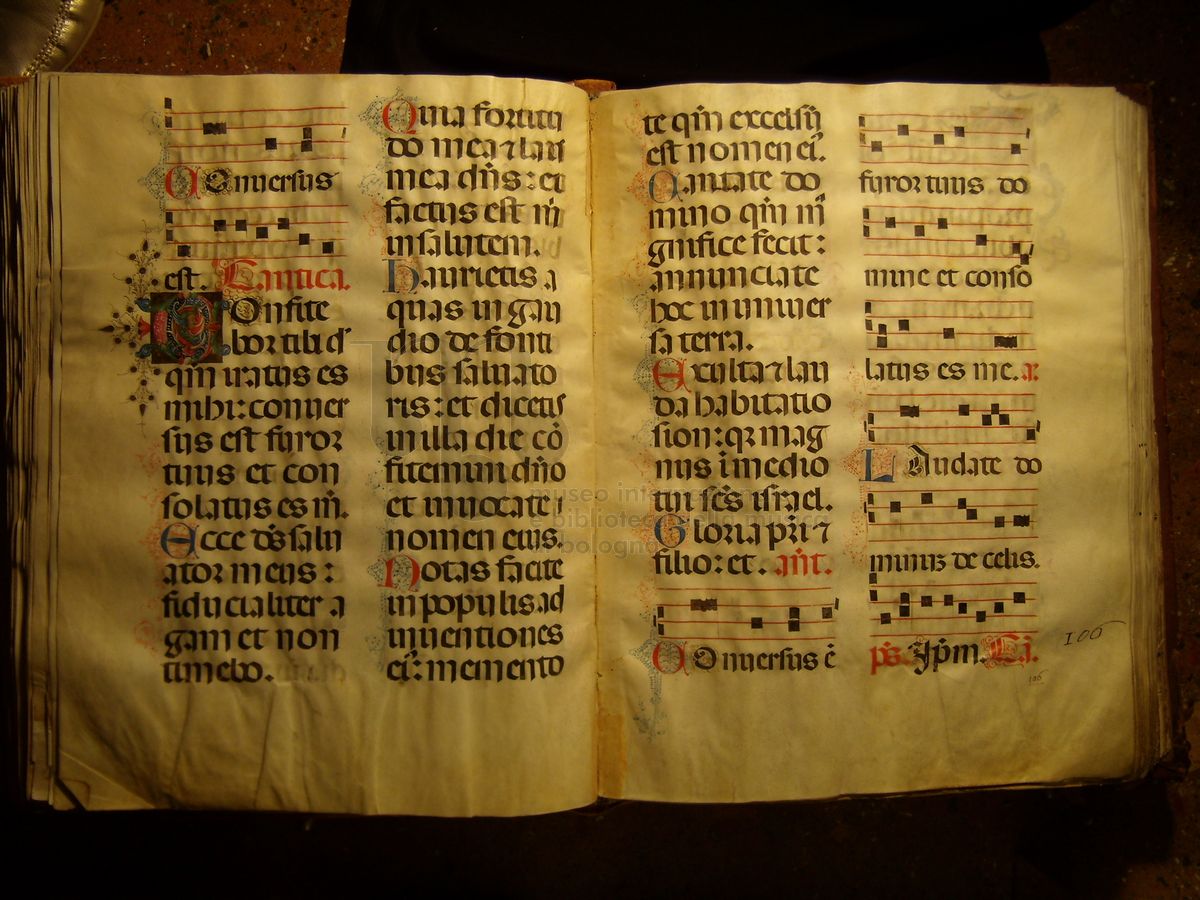 Conuersus
est. Cantica.
Confite
bor tibi d̄
qm̄ iratus es
mihi: conuer
sus est furor
tuus et con
solatus es m̄.
Ecce ds̄ salu
ator meus:
fiducialiter a
gam et non
timebo.
Quia fortitu
do mea ⁊ laus
mea dn̄s: et
factus est m̄
in salutem.
Haurietis a
quas in gau
dio de fonti
bus saluato
ris: et dicetis
in illa die cō
fitemini dn̄o
et inuocate
nomen eius.
Notas facite
in populis ad
inuentiones
ei᷒: memento
te qm̄ excelsū
est nomen ei᷒.
Cantate do
mino qm̄ m̄
gnifice fecit:
annunciate
hoc in uniuer
sa terra.
Exulta ⁊ lau
da habitatio
sion: qꝛ mag
nus i medio
tui scs̄ israel.
Gloria pr̄i ⁊
filio: et. ant̄.
Conuersus ē
furor tuus do
mine et conso
latus es me. a
Laudate do
minū de celis.
ps̄. Ip̄m. Ca.
106
106
museo inter
e biblioteca
di bologna